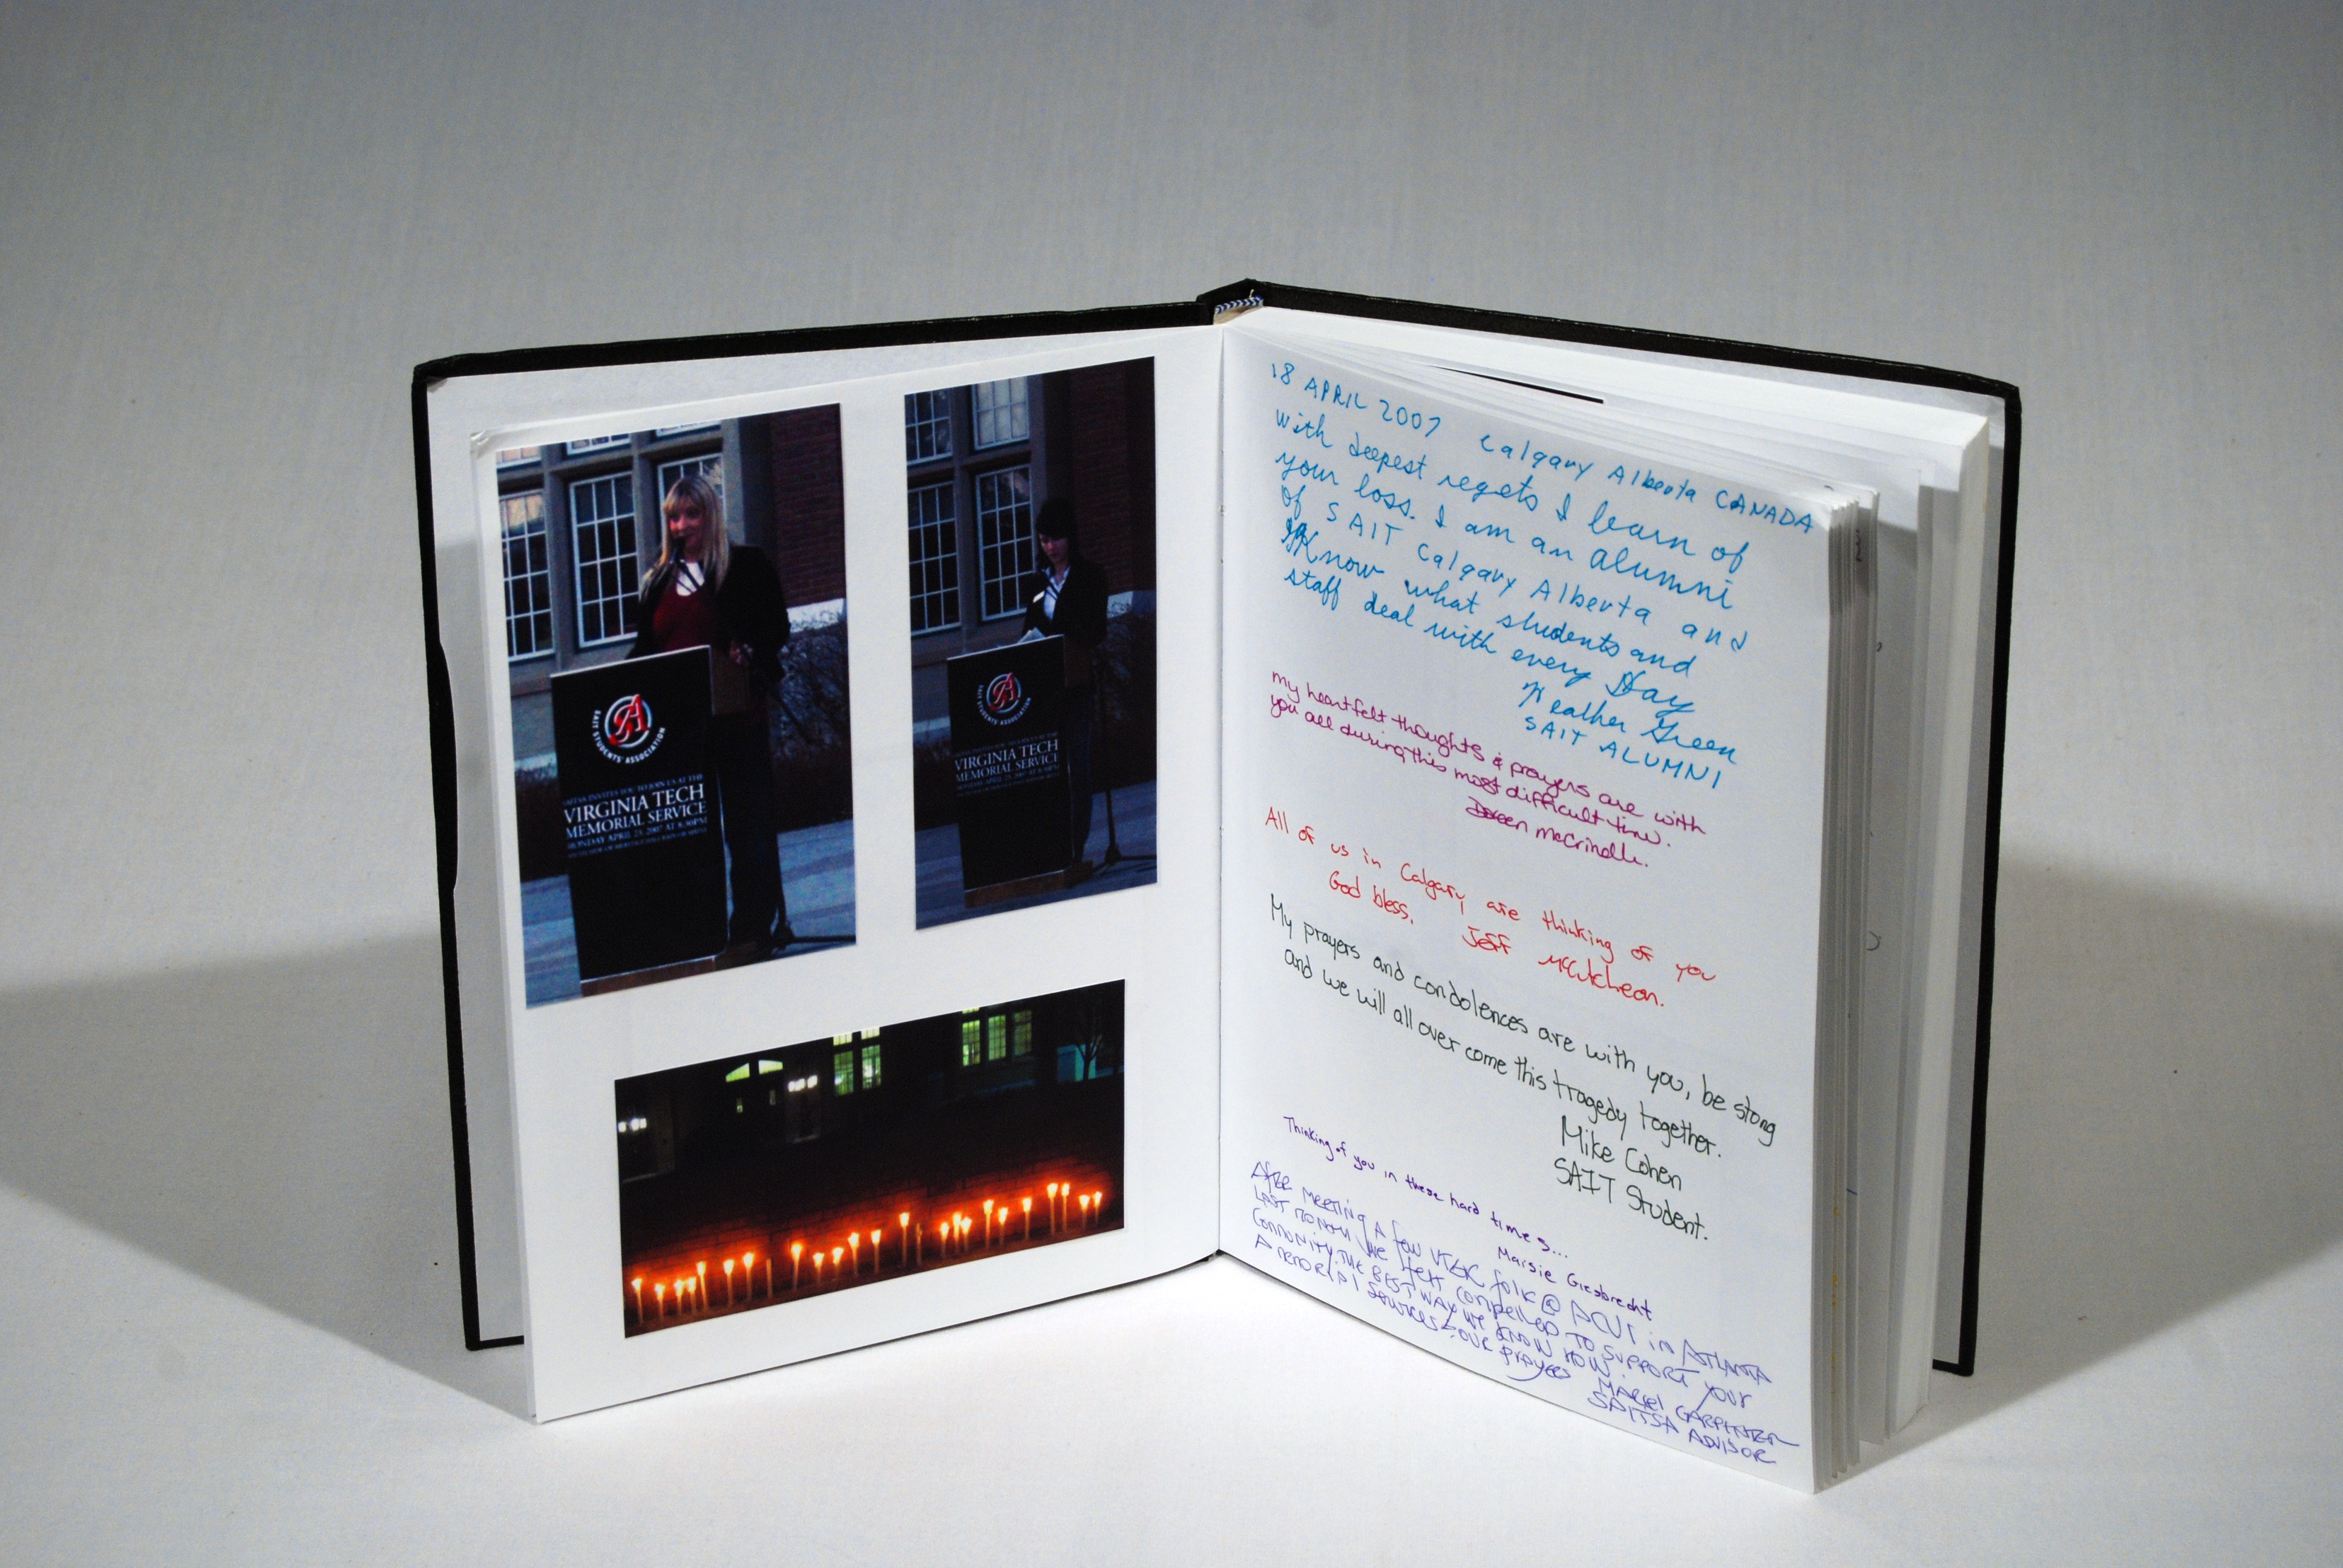 SA
SAIT STUDENTS' ASSOCIATION
SAITSA INVITES YOU TO JOIN US AT THE
VIRGINIA TECH
MEMORIAL SERVICE
MONDAY APRIL 23, 2007 AT 8:30PM
SA
SAIT STUDENTS' ASSOCIATION
VIRGINIA TECH
MEMORIAL SERVICE
18 APRIL 2007 Calgary Alberta CANADA
with deepest regets I learn of
your loss. I am an alumni
of SAIT Calgary Alberta and
Know what students and
staff deal with every Day
Heather Green
SAIT ALUMNI
my heartfelt thoughts & prayers are with
you all during this most difficult time.
Doreen McCrindle.
All of us in Calgary are thinking of you
God bless. Jeff McCutcheon.
My prayers and condolences are with you, be stong
and we will all over come this tragedy together.
Mike Cohen
SAIT Student.
Thinking of you in these hard times...
Marsie Giesbrecht
AfTER MEETING A few folk @ ACUI in ATLANTA
LAST we felt compelled TO SUPPORT your
COMMUNITY THE BEST WAY WE KNOW HOW.
A MEMORIAL SERVICE & our prayers
CARPENTER
SAITSA ADVISOR